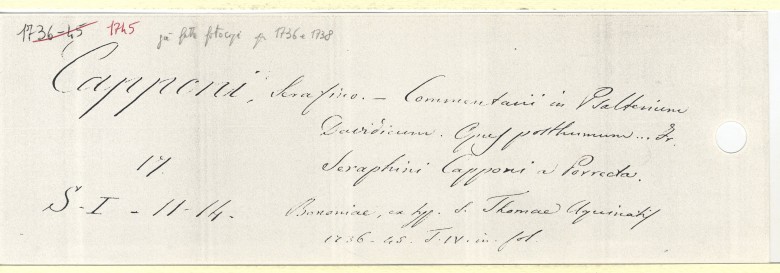 1736-45 1745 già fatte fotocopie pr 1736 e 1738
Capponi, Serafino. - Commentarii in Psalterium
Davidicum. Opus posthumum... Fr.
17. Seraphini Capponi a Porrecta.
S-I-11-14. Bononiae, ex typ. S. Thomae Aquinatis
1736-45. T. IV. in fol.